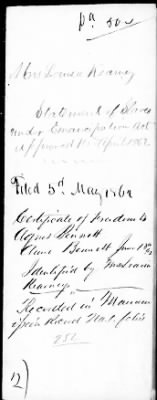 pd 50c
Mrs Louisa Kearney
Statement of Slaves
under Emancipation Act
approved 16 April 1862
Filed 5th May 1862
Certificate of Freedom to
Agnes Bennett
Bennett June
Identified by
Kearney
Recorded in Manumission
Record folio
12)